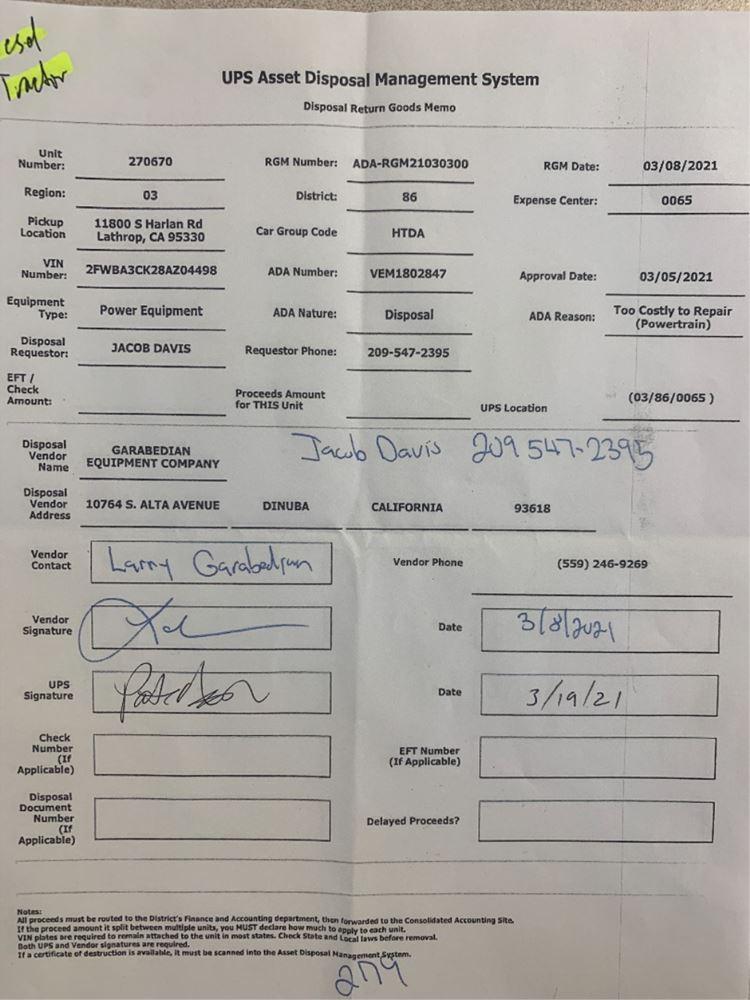 csd
Tractor
UPS Asset Disposal Management System
Disposal Return Goods Memo
Unit Number: 270670 RGM Number: ADA-RGM21030300 RGM Date: 03/08/2021
Region: 03 District: 86 Expense Center: 0065
Pickup Location 11800 S Harlan Rd Lathrop, CA 95330 Car Group Code HTDA
VIN Number: 2FWBA3CK28AZ04498 ADA Number: VEM1802847 Approval Date: 03/05/2021
Equipment Type: Power Equipment ADA Nature: Disposal ADA Reason: Too Costly to Repair (Powertrain)
Disposal Requestor: JACOB DAVIS Requestor Phone: 209-547-2395
EFT / Check Amount: Proceeds Amount for THIS Unit UPS Location (03/86/0065 )
Disposal Vendor Name GARABEDIAN EQUIPMENT COMPANY Jacob Davis 209 547-2395
Disposal Vendor Address 10764 S. ALTA AVENUE DINUBA CALIFORNIA 93618
Vendor Contact Larry Garabedian Vendor Phone (559) 246-9269
Vendor Signature Date 3/8/2021
UPS Signature Date 3/19/21
Check Number (If Applicable) EFT Number (If Applicable)
Disposal Document Number (If Applicable) Delayed Proceeds?
Notes:
All proceeds must be routed to the District's Finance and Accounting department, then forwarded to the Consolidated Accounting Site.
If the proceed amount it split between multiple units, you MUST declare how much to apply to each unit.
VIN plates are required to remain attached to the unit in most states. Check State and Local laws before removal.
Both UPS and Vendor signatures are required.
If a certificate of destruction is available, it must be scanned into the Asset Disposal Management System.
279